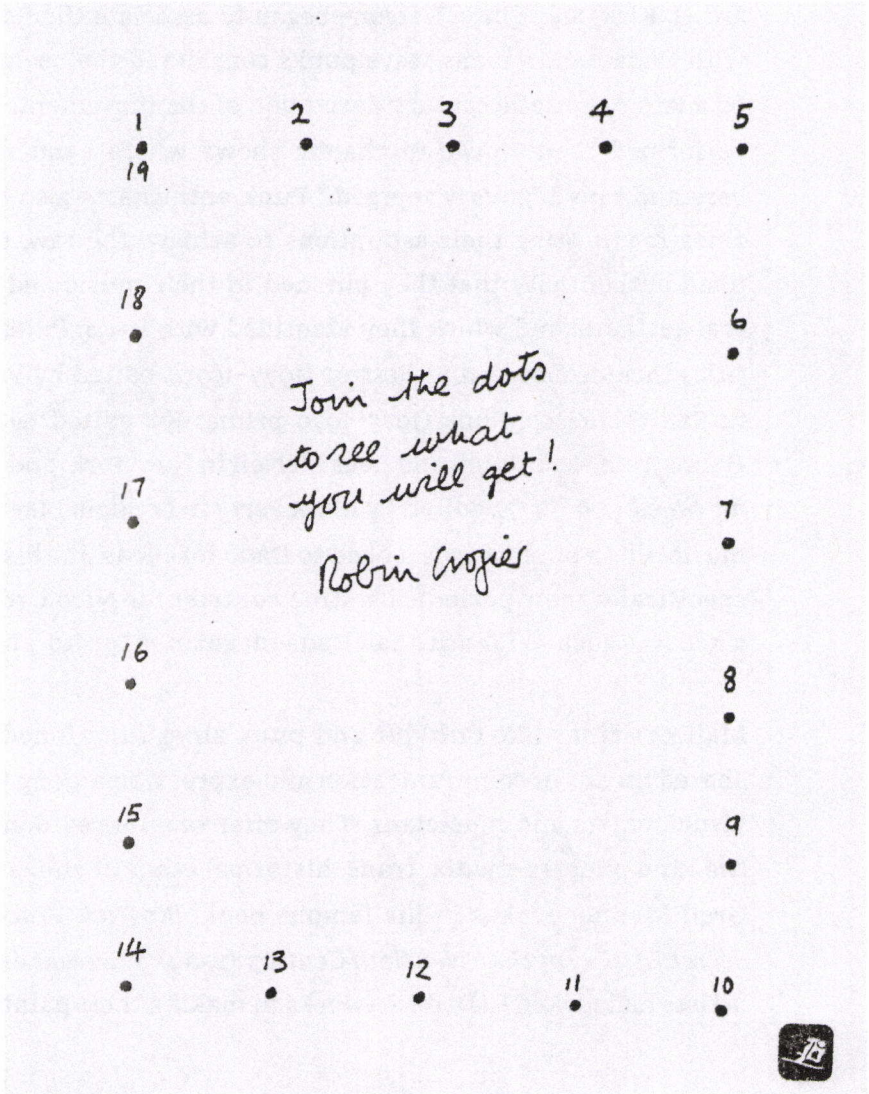 1 2 3 4 5
19
18 6
Join the dots
to see what
you will get!
17 7
Robin Crozier
16 8
15 9
14 13 12 11 10